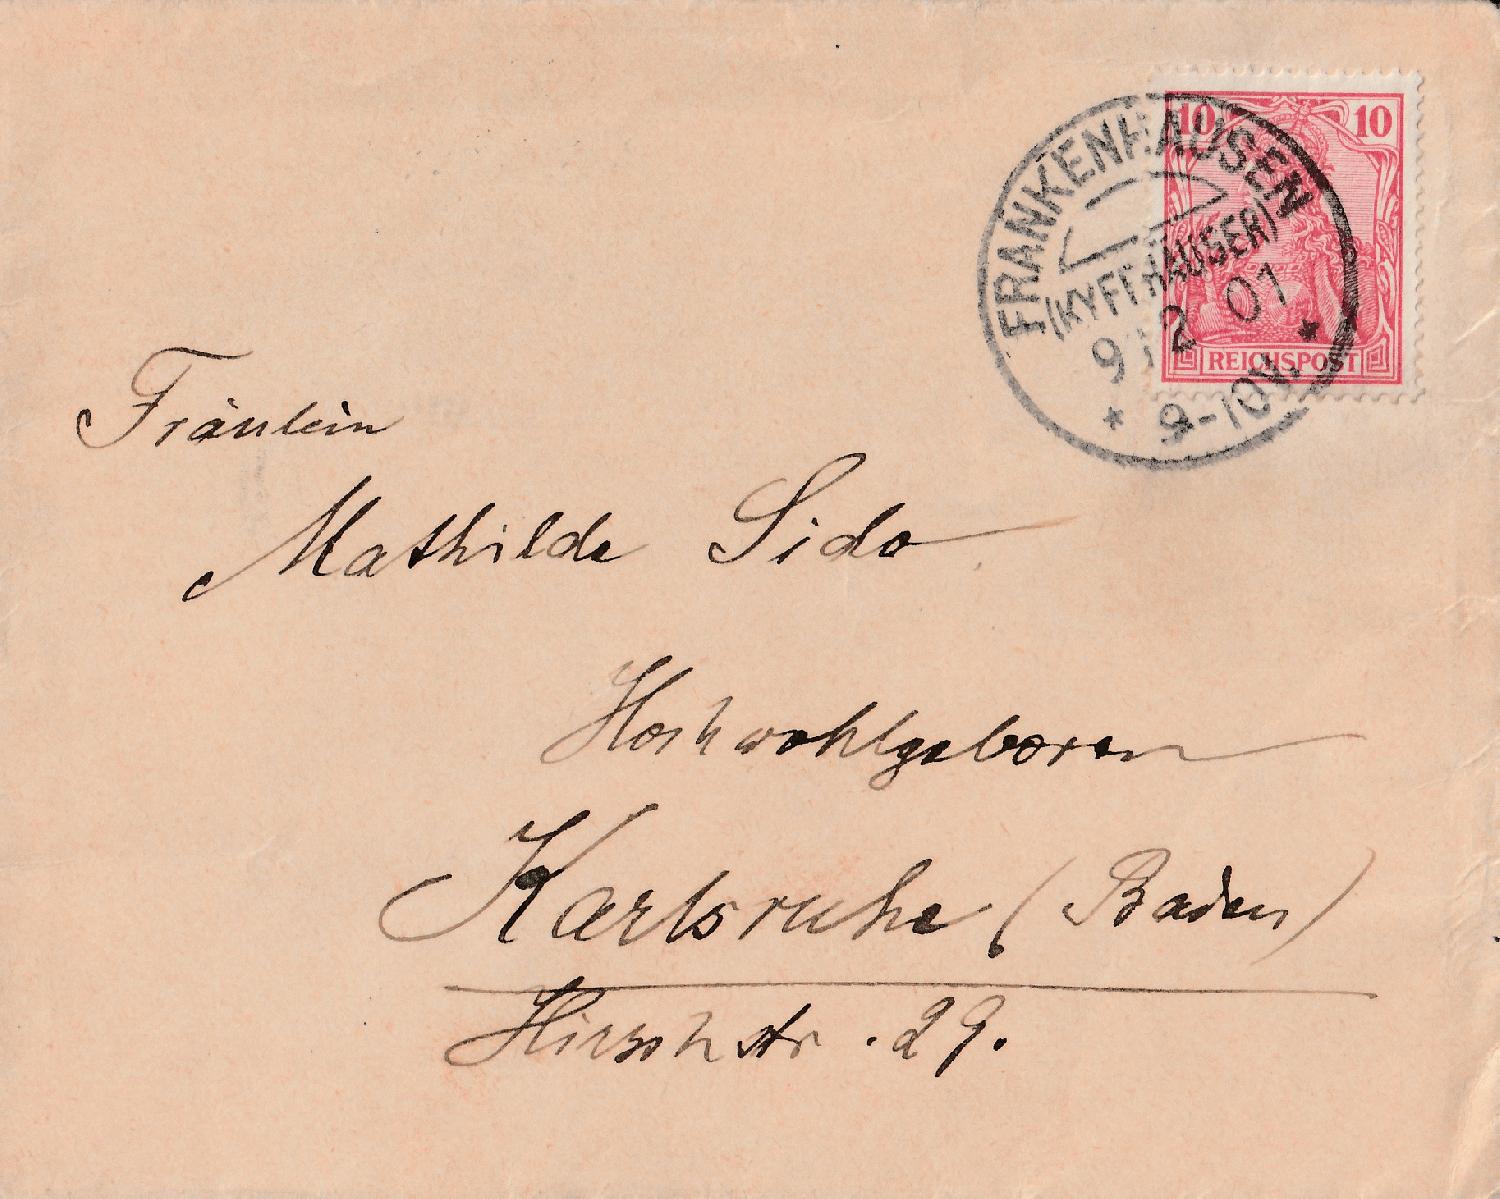 10 10
FRANKENHAUSEN
(KYFFHÄUSER)
9 2 01
* 9-10V. *
REICHSPOST
Fräulein
Mathilde Sido
Hochwohlgeboren
Karlsruhe (Baden)
Hirschstr. 29.